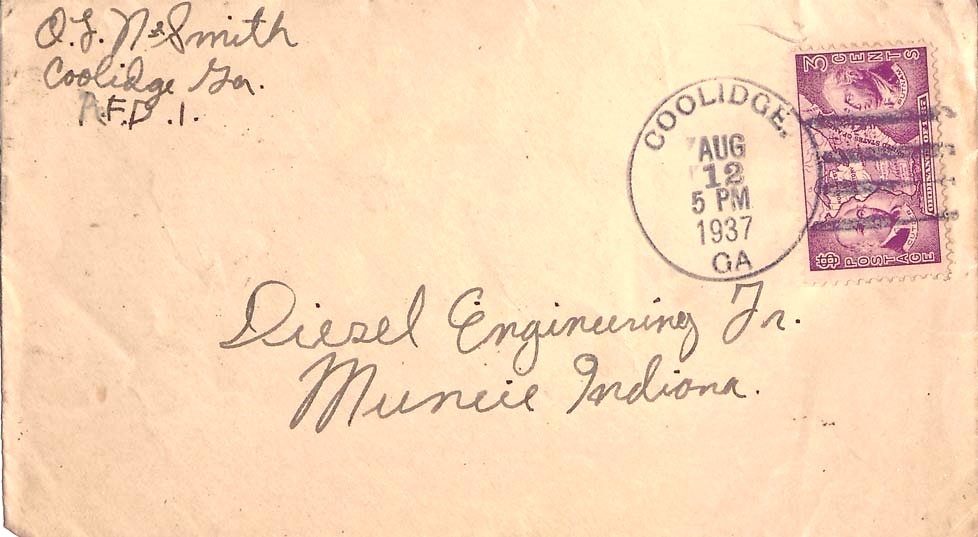 O. L. NeSmith
Coolidge Ga.
R.F.D. 1.
COOLIDGE,
AUG
12
5 PM
1937
GA
3 CENTS
UNITED STATES OF
POSTAGE
Diesel Engineering Tr.
Muncie Indiana.